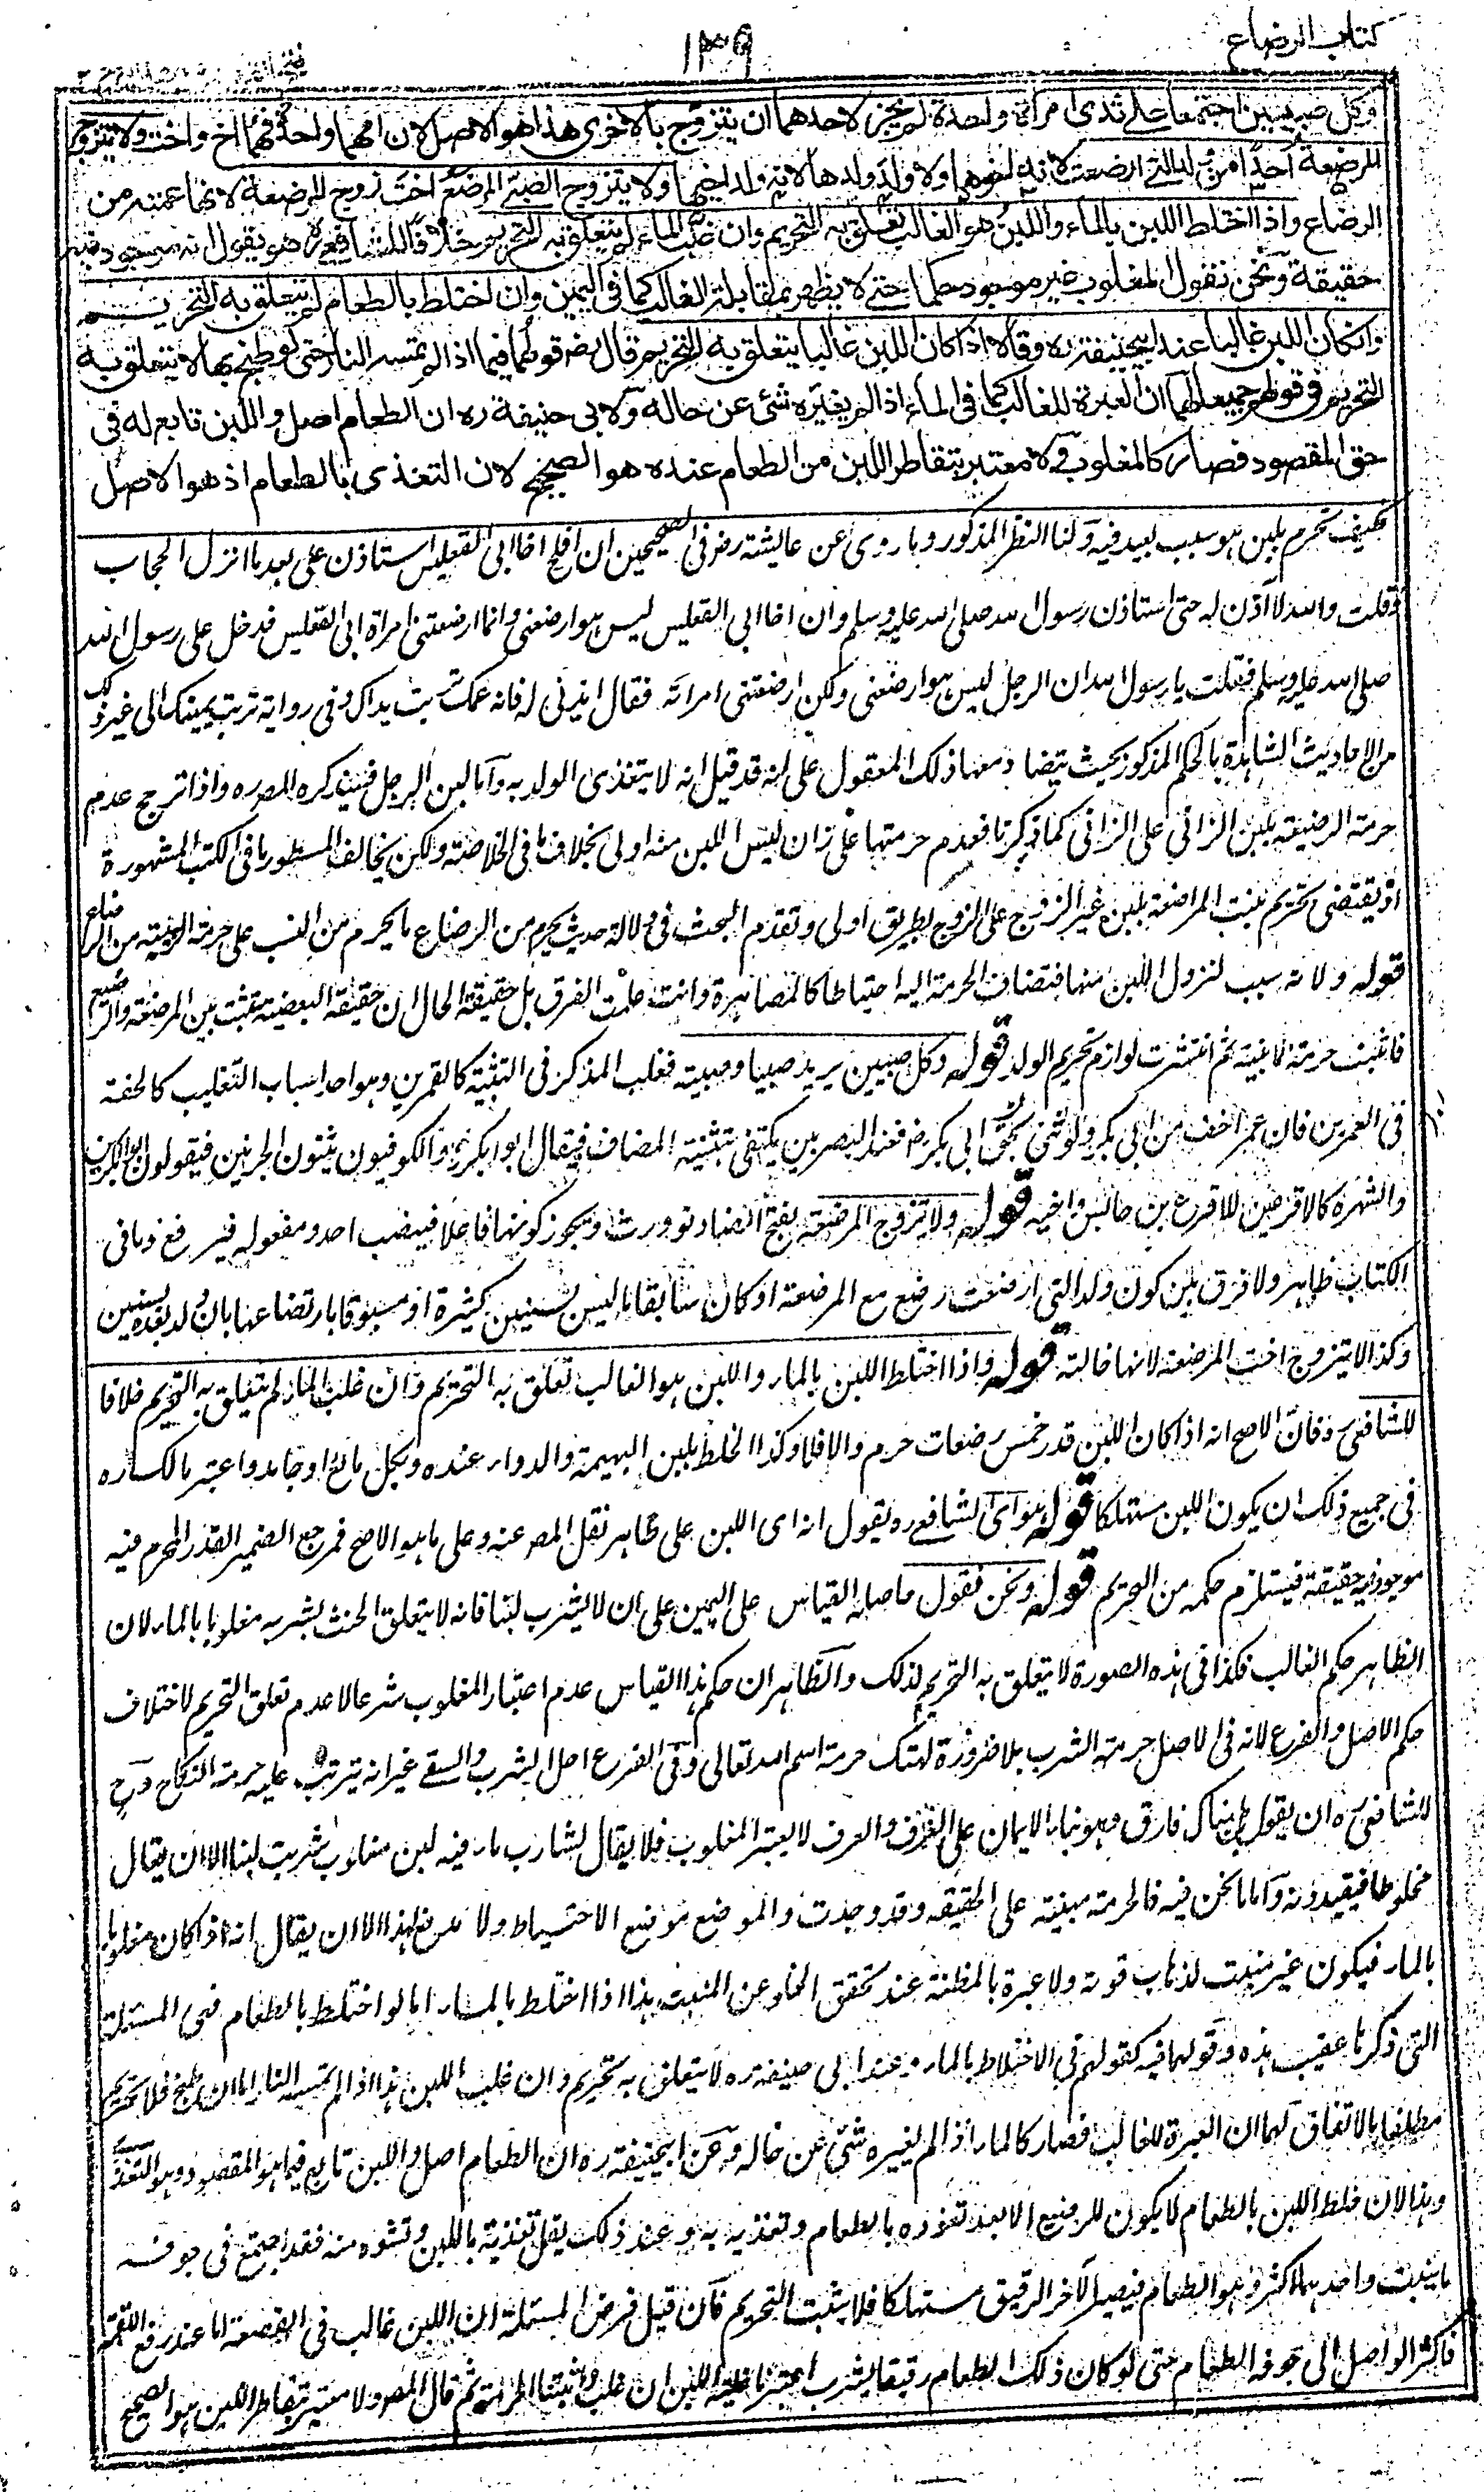 كتاب الرضاع
١٣٩
وكل صبيين اجتمعا على ثدى امرأة واحدة لم يجز لاحدهما ان يتزوج بالاخرى هذا هو الاصل لان امهما واحدة فهما اخ واخت ولا يتزوج
المرضعة احدا من ولد التى ارضعت لانه اخوها ولا ولد ولدها لانه ولد اخيها ولا يتزوج الصبى المرضع اخت زوج المرضعة لانها عمته من
الرضاع واذا اختلط اللبن بالماء واللبن هو الغالب تعلق به التحريم وان غلب الماء لم يتعلق به التحريم خلافا للشافعى ره هو يقول انه موجود فيه
حقيقة ونحن نقول المغلوب غير موجود حكما حتى لا يظهر بمقابلة الغالب كما فى اليمين وان اختلط بالطعام لم يتعلق به التحريم
وانكان اللبن غالبا عند ابيحنيفة ره وقالا اذا كان اللبن غالبا يتعلق به التحريم قال رض قولهما فيما اذا لم تمسه النار حتى لو طبخ بها لا يتعلق به
التحريم فى قولهم جميعا لهما ان العبرة للغالب كما فى الماء اذا لم يغيره شئ عن حاله ولابى حنيفة ره ان الطعام اصل واللبن تابع له فى
حق المقصود فصار كالمغلوب ولا معتبر بتقاطر اللبن من الطعام عنده هو الصحيح لان التغذى بالطعام اذ هو الاصل
فكيف تحرم بلبن هو سبب بعيد فيه ولنا النظر المذكور وما روى عن عايشة رض فى الصحيحين ان افلح اخا ابى القعيس استاذن على بعد ما انزل الحجاب
فقلت والله لا آذن له حتى استاذن رسول الله صلى الله عليه وسلم فان اخا ابى القعيس ليس هو ارضعنى وانما ارضعتنى امرأة ابى القعيس فدخل على رسول الله
صلى الله عليه وسلم فقلت يا رسول الله ان الرجل ليس هو ارضعنى ولكن ارضعتنى امراته فقال ايذنى له فانه عمك تربت يداك وفى رواية تربت يمينك الى غير ذلك
من الاحاديث الشاهدة بالحكم المذكور بحيث يتضاد معها ذلك المعقول على انه قد قيل انه لا يتغذى الولد به واما لبن الرجل فسيذكره المص ره واذا ترجح عدم
حرمة الرضيعة بلبن الزانى على الزانى كما ذكرنا فعدم حرمتها على زان ليس اللبن منه اولى بخلاف ما فى الخلاصة ولكن يخالف المسطور ما فى الكتب المشهورة
اذ يقتضى تحريم بنت المرضعة بلبن غير الزوج على الزوج بطريق اولى وتقدم البحث فى دلالة حديث يحرم من الرضاع ما يحرم من النسب على حرمة الربيبة من الرضاع
قوله ولانه سبب لنزول اللبن منها فتضاف الحرمة اليه احتياطا كالمصاهرة وانت علمت الفرق بل حقيقة الحال ان حقيقة البعضية تثبت بين المرضعة والرضيع
فاثبت حرمة الابنية ثم انتشرت لوازم تحريم الولد قوله وكل صبيين يريد صبيا وصبية فغلب المذكر فى التثنية كالقمرين وهو احد اسباب التغليب كالخفة
فى العمرين فان عمر اخف من ابى بكر ولو ثنى نحو ابى بكر رض فعند البصريين يكتفى بتثنية المضاف فيقال ابوا بكر والكوفيون يثنون الجزئين فيقولون ابوا بكرين
والشهرة كالاقرعين للاقرع بن حابس واخيه قوله ولا تتزوج المرضعة بفتح الضاد تو ورث ويجوز كونها فاعلا فينصب احد ومفعوله فيرفع وما فى
الكتاب ظاهر ولا فرق بين كون ولد التى ارضعت رضع مع المرضعة او كان سابقا بالسن بسنين كثيرة او مسبوقا بارتضاعها بان ولد بعده بسنين
وكذا لا يتزوج اخت المرضعة لانها خالته قوله واذا اختلط اللبن بالماء واللبن هو الغالب تعلق به التحريم وان غلب الماء لم يتعلق به التحريم خلافا
للشافعى ره فان الاصح انه اذا كان اللبن قدر خمس رضعات حرم والا فلا وكذا الخلط بلبن البهيمة والدواء عنده وبكل مائع او جامد واعتبر مالك ره
فى جميع ذلك ان يكون اللبن مستهلكا قوله هو اى الشافعى ره يقول انه اى اللبن على ظاهر نقل المص عنه وعلى ما هو الاصح فمرجع الضمير القدر المحرم فيه
موجود فيه حقيقة فيستلزم حكمه من التحريم قوله ونحن نقول حاصله القياس على اليمين على ان لا يشرب لبنا فانه لا يتعلق الحنث بشربه مغلوبا بالماء لان
الظاهر حكم الغالب فكذا فى هذه الصورة لا يتعلق به التحريم لذلك والظاهر ان حكم هذا القياس عدم اعتبار المغلوب شرعا لا عدم تعلق التحريم لاختلاف
حكم الاصل والفرع لانه فى الاصل حرمة الشرب بلا ضرورة لهتك حرمة اسم الله تعالى وفى الفرع اصل الشرب والسقى غير انه يترتب عليه حرمة النكاح وح
للشافعى ره ان يقول هناك فارق وهو بناء الايمان على العرف والعرف لا يعتبر المغلوب فلا يقال لشارب ماء فيه لبن مغلوب شرب لبنا الا ان يقال
مخلوطا فيقيدونه واما ما نحن فيه فالحرمة مبنية على الحقيقة وقد وجدت والموضع موضع الاحتياط ولا مدفع لهذا الا ان يقال انه اذا كان مغلوبا
بالماء فيكون غير منبت لذهاب قوته ولا عبرة بالمظنة عند تحقق الخلو عن المنبت هذا اذا اختلط بالماء اما لو اختلط بالطعام فهى المسئلة
التى ذكرنا عقيب هذه وقولهما فيه كقولهم فى الاختلاط بالماء وعند ابى حنيفة ره لا يتعلق به تحريم وان غلب اللبن هذا اذا لم تمسه النار اما ان طبخ فلا تحريم
مطلقا بالاتفاق لهما ان العبرة للغالب فصار كالماء اذا لم يغيره شئ عن حاله وعن ابيحنيفة ره ان الطعام اصل واللبن تابع فيما هو المقصود وهو التغذى
وهذا لان خلط اللبن بالطعام لا يكون للرضيع الا بعد تعوده بالطعام وتغذيه به وعند ذلك يقل تغذيه باللبن ونشوه منه فقد اجتمع فى جوفه
ما ينبت واحدهما اكثر وهو الطعام فيصير الآخر الرقيق مستهلكا فلا يثبت التحريم فان قيل فرض المسئلة ان اللبن غالب فى القصعة اما عند رفع اللقمة
فاكثر الواصل الى جوفه الطعام حتى لو كان ذلك الطعام رقيقا يشرب اعتبرنا غلبة اللبن ان غلب واثبتنا الحرمة ثم قال المص ولا معتبر بتقاطر اللبن هو الصحيح